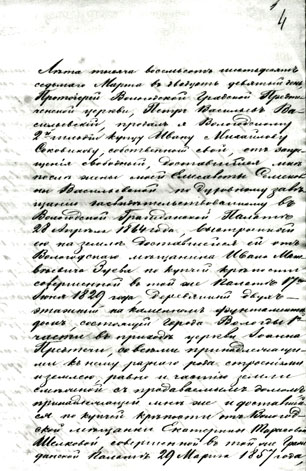 4
Лѣта тысяча восемьсотъ шестьдесятъ
седьмаго Марта въ двадцать девятый день
Протоіерей Вологодской Градской Предте-
ченской церкви, Петръ Васильевъ Ва-
силевскій, продалъ я Вологодскому
2й гильдіи купцу Ивану Михайлову
собственной свой, отъ запре-
щенія свободный, доставшійся мнѣ
послѣ жены моей Елисаветы
Василевской по духовному завѣ-
щанію засвидѣтельствованному въ
Вологодской Гражданской Палатѣ
28 Апрѣля 1864 года, выстроенной
ею на землѣ доставшейся ей отъ
Вологодскаго мѣщанина Ивана Мат-
вѣевича Зуева по купчей крѣпости
совершенной въ той же Палатѣ 17
Іюня 1829 года, деревянный двух-
этажный на каменномъ фундаментѣ
домъ, состоящій города Вологды 1
части въ приходѣ церкви Іоанна
Предтечи, со всѣми принадлежащи-
ми къ нему разнаго рода строеніями
и землею, равно и часть земли
смежной съ продаваемымъ домомъ
принадлежащей мнѣ же и доставшей-
ся по купчей крѣпости отъ Вологод-
ской мѣщанки Екатерины Тарасовой
совершенной въ той же Граж-
данской Палатѣ 29 Марта 1857 года,